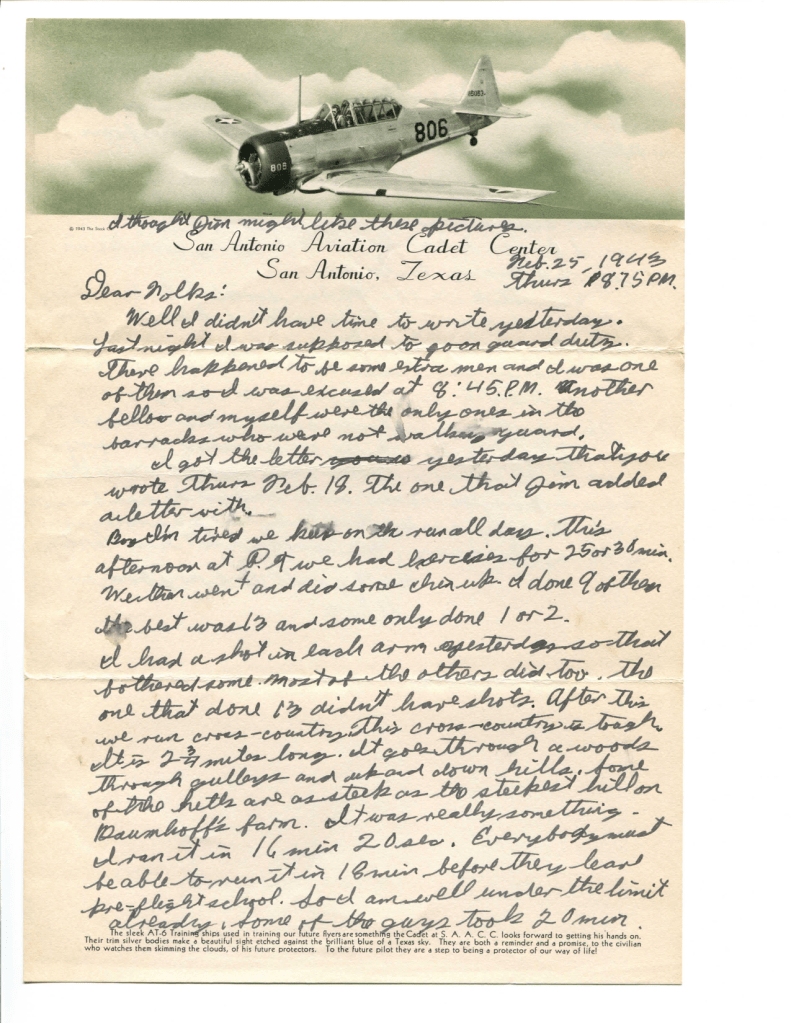 806
805
© 1943 The
I thought Jim might like these pictures.
San Antonio Aviation Cadet Center
San Antonio, Texas
Feb. 25, 1943
Thurs 8:15 PM.
Dear Folks:
Well I didn't have time to write yesterday.
Last night I was supposed to go on guard duty.
There happened to be some extra men and I was one
of them so I was excused at 8:45 P.M. Another
fellow and myself were the only ones in the
barracks who were not walking guard.
I got the letter yesterday that you
wrote Thurs Feb. 18. The one that Jim added
a letter with.
Boy I'm tired we kept on the run all day. This
afternoon at P.T we had exercises for 25 or 30 min.
We then went and did some chin up. I done 9 of them
the best was 13 and some only done 1 or 2.
I had a shot in each arm yesterday so that
bothered some. Most of the others did too. The
one that done 13 didn't have shots. After this
we run cross-country. This cross-country is tough.
It is 2 3/4 miles long. It goes through a woods
through gulleys and up and down hills. Some
of the hills are as steep as the steepest hill on
Baumhoff's farm. It was really something.
I ran it in 16 min 20 sec. Everybody must
be able to run it in 18 min before they leave
pre-flight school. So I am well under the limit
already, some of the guys took 20 min.
The sleek AT-6 Training ships used in training our future flyers are something the Cadet at S. A. A. C. C. looks forward to getting his hands on.
Their trim silver bodies make a beautiful sight etched against the brilliant blue of a Texas sky. They are both a reminder and a promise, to the civilian
who watches them skimming the clouds, of his future protectors. To the future pilot they are a step to being a protector of our way of life!